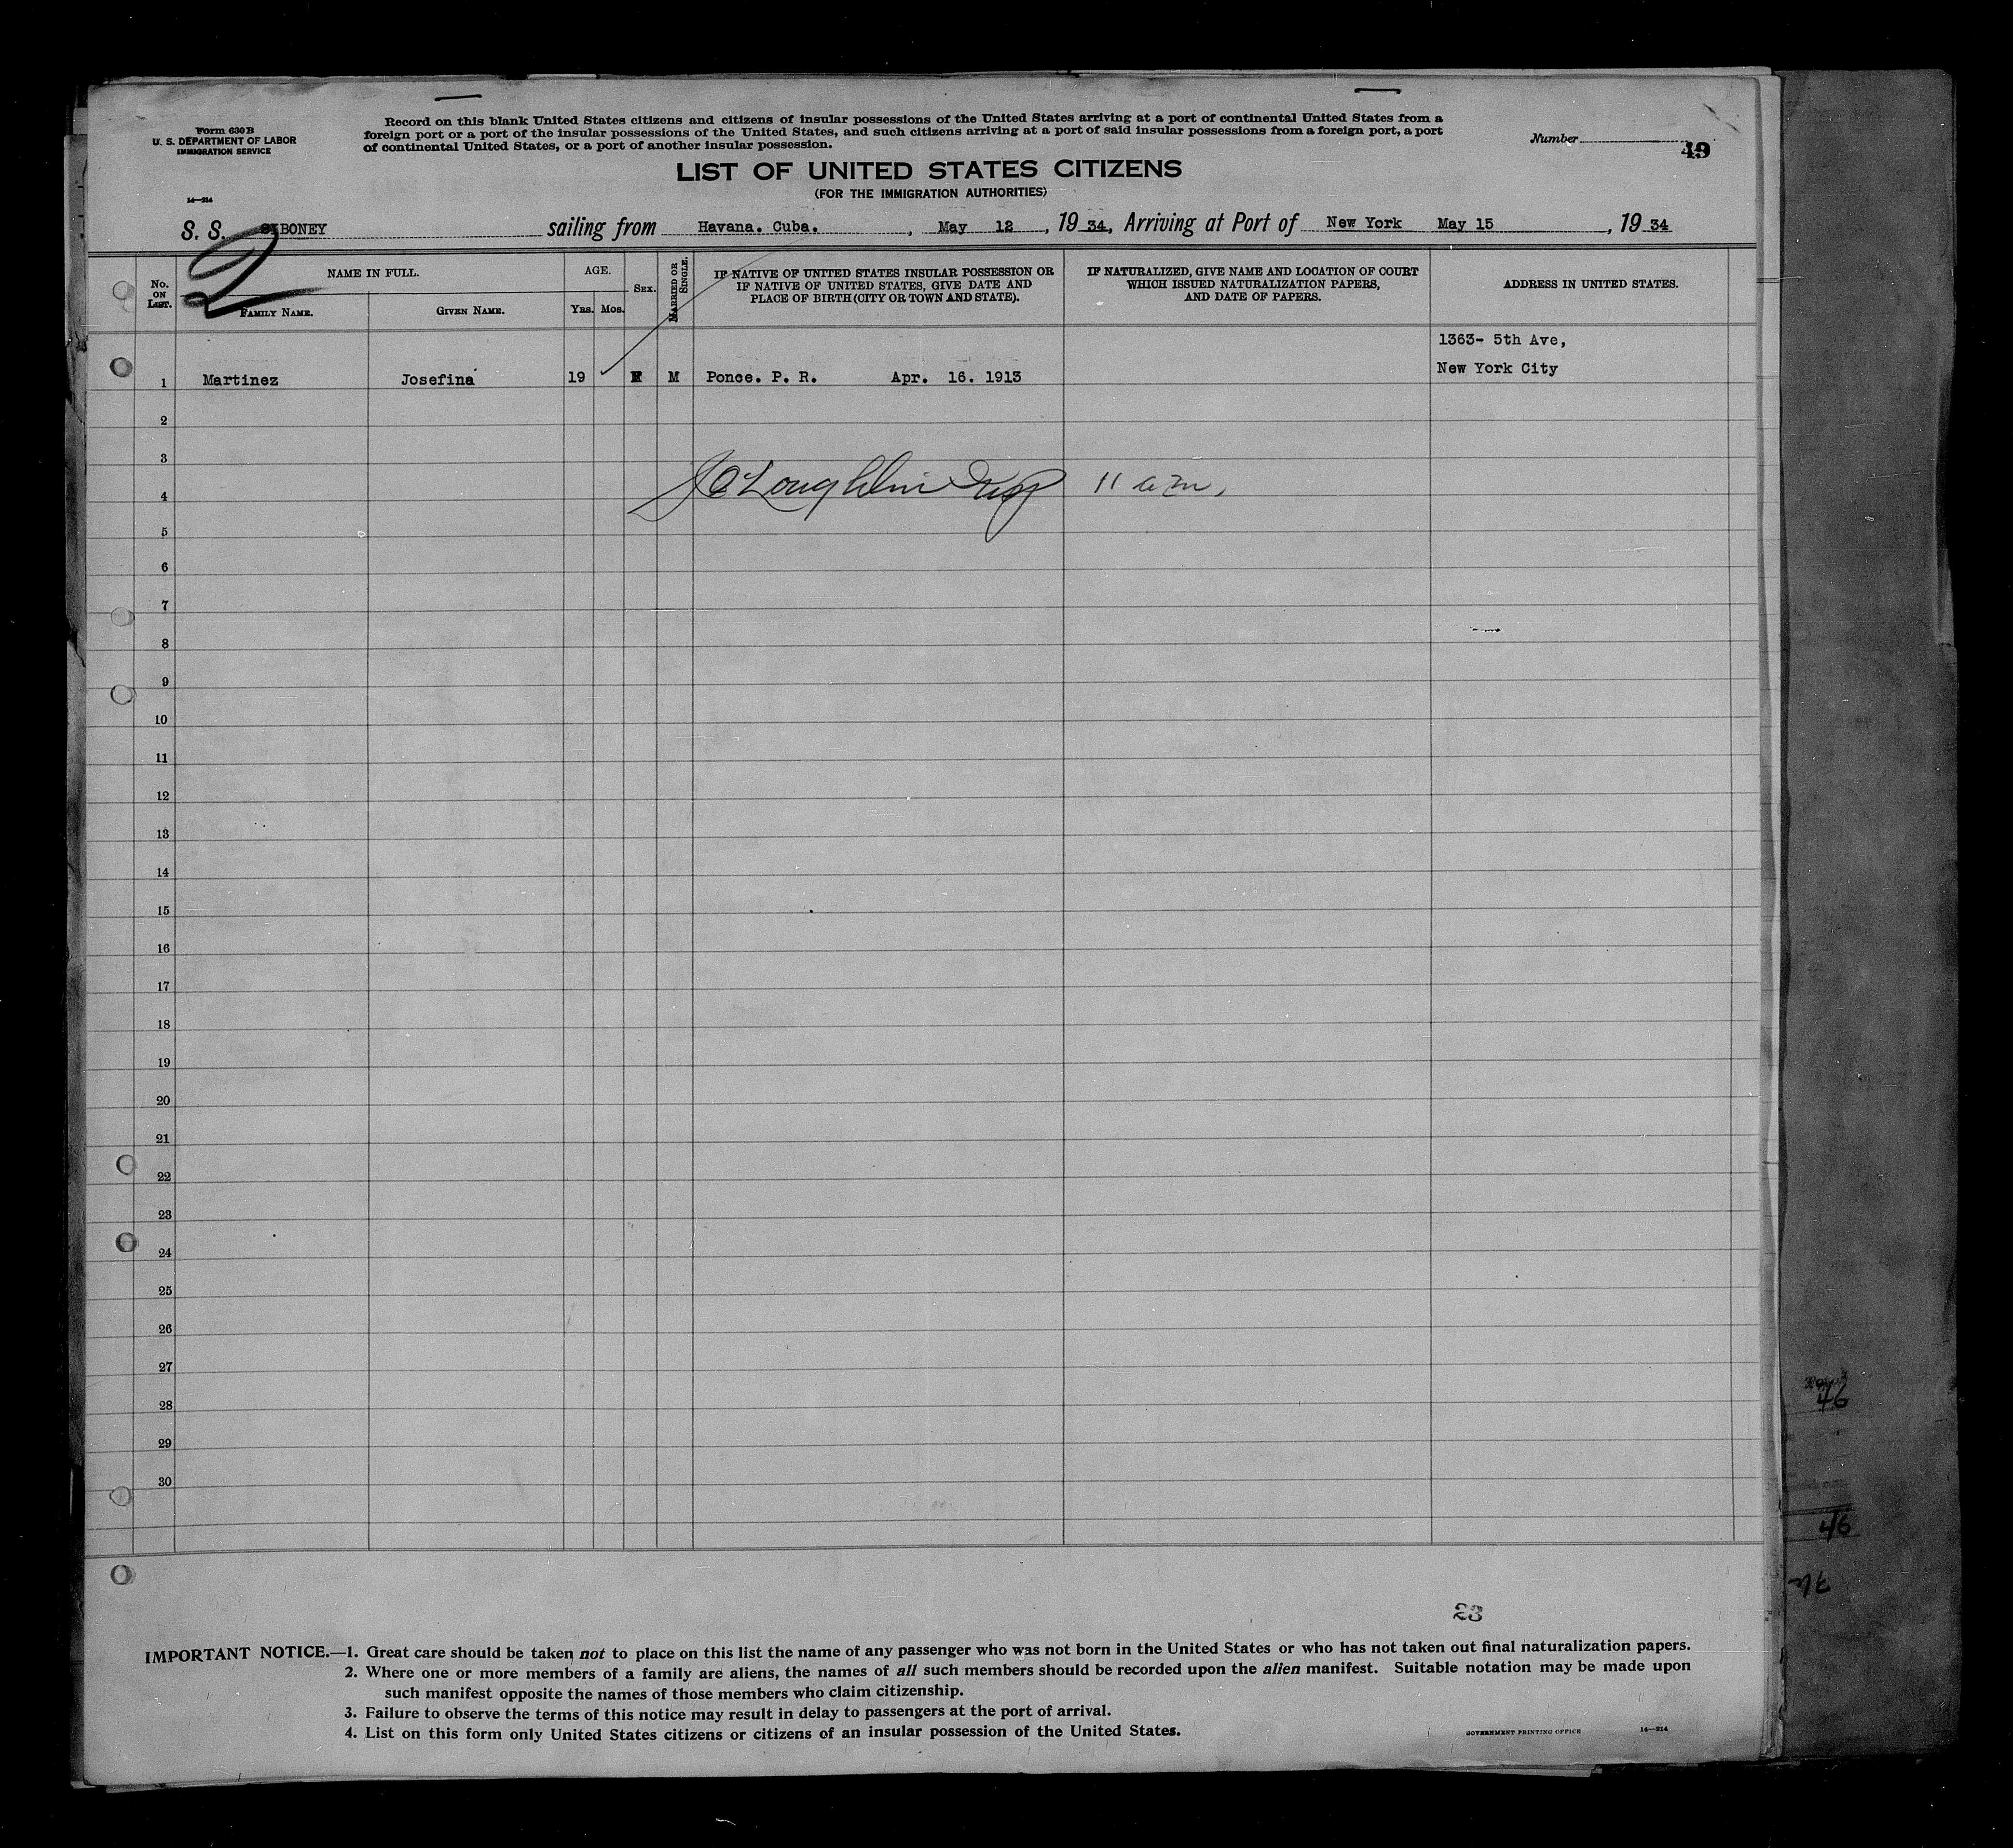 Form 630 B
U. S. DEPARTMENT OF LABOR
IMMIGRATION SERVICE
14—214
Record on this blank United States citizens and citizens of insular possessions of the United States arriving at a port of continental United States from a
foreign port or a port of the insular possessions of the United States, and such citizens arriving at a port of said insular possessions from a foreign port, a port
of continental United States, or a port of another insular possession.
Number
49
LIST OF UNITED STATES CITIZENS
(FOR THE IMMIGRATION AUTHORITIES)
S. S. SIBONEY sailing from Havana. Cuba. , May 12 , 19 34, Arriving at Port of New York May 15 , 19 34
2
No. ON LIST.
NAME IN FULL.
FAMILY NAME.
GIVEN NAME.
AGE.
Yrs. Mos.
SEX.
MARRIED OR SINGLE.
IF NATIVE OF UNITED STATES INSULAR POSSESSION OR
IF NATIVE OF UNITED STATES, GIVE DATE AND
PLACE OF BIRTH (CITY OR TOWN AND STATE).
IF NATURALIZED, GIVE NAME AND LOCATION OF COURT
WHICH ISSUED NATURALIZATION PAPERS,
AND DATE OF PAPERS.
ADDRESS IN UNITED STATES.
1363- 5th Ave,
1 Martinez Josefina 19 F M Ponce. P. R. Apr. 16. 1913 New York City
2
3
4 11 a m.
5
6
7
8
9
10
11
12
13
14
15
16
17
18
19
20
21
22
23
24
25
26
27
28
29
30
46
46
23
IMPORTANT NOTICE.—1. Great care should be taken not to place on this list the name of any passenger who was not born in the United States or who has not taken out final naturalization papers.
2. Where one or more members of a family are aliens, the names of all such members should be recorded upon the alien manifest. Suitable notation may be made upon
such manifest opposite the names of those members who claim citizenship.
3. Failure to observe the terms of this notice may result in delay to passengers at the port of arrival.
4. List on this form only United States citizens or citizens of an insular possession of the United States.
GOVERNMENT PRINTING OFFICE 14—214